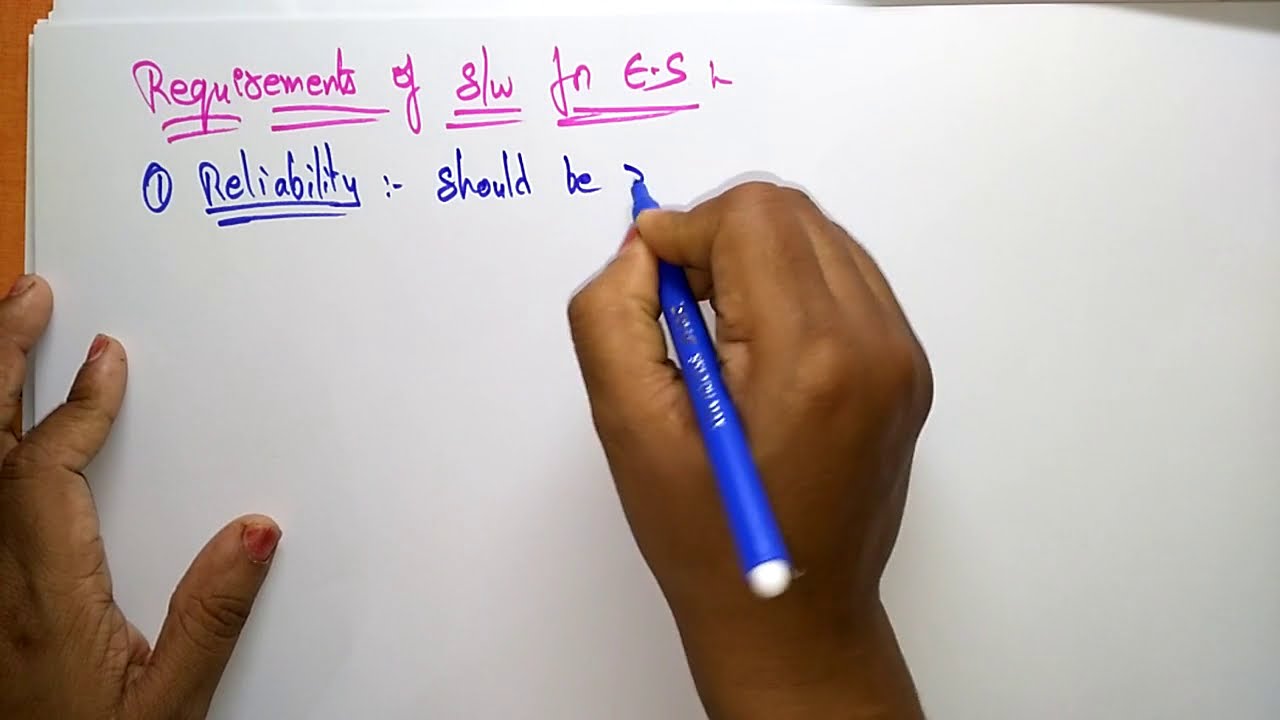 Requirements of S/W for E.S :-
① Reliability :- Should be